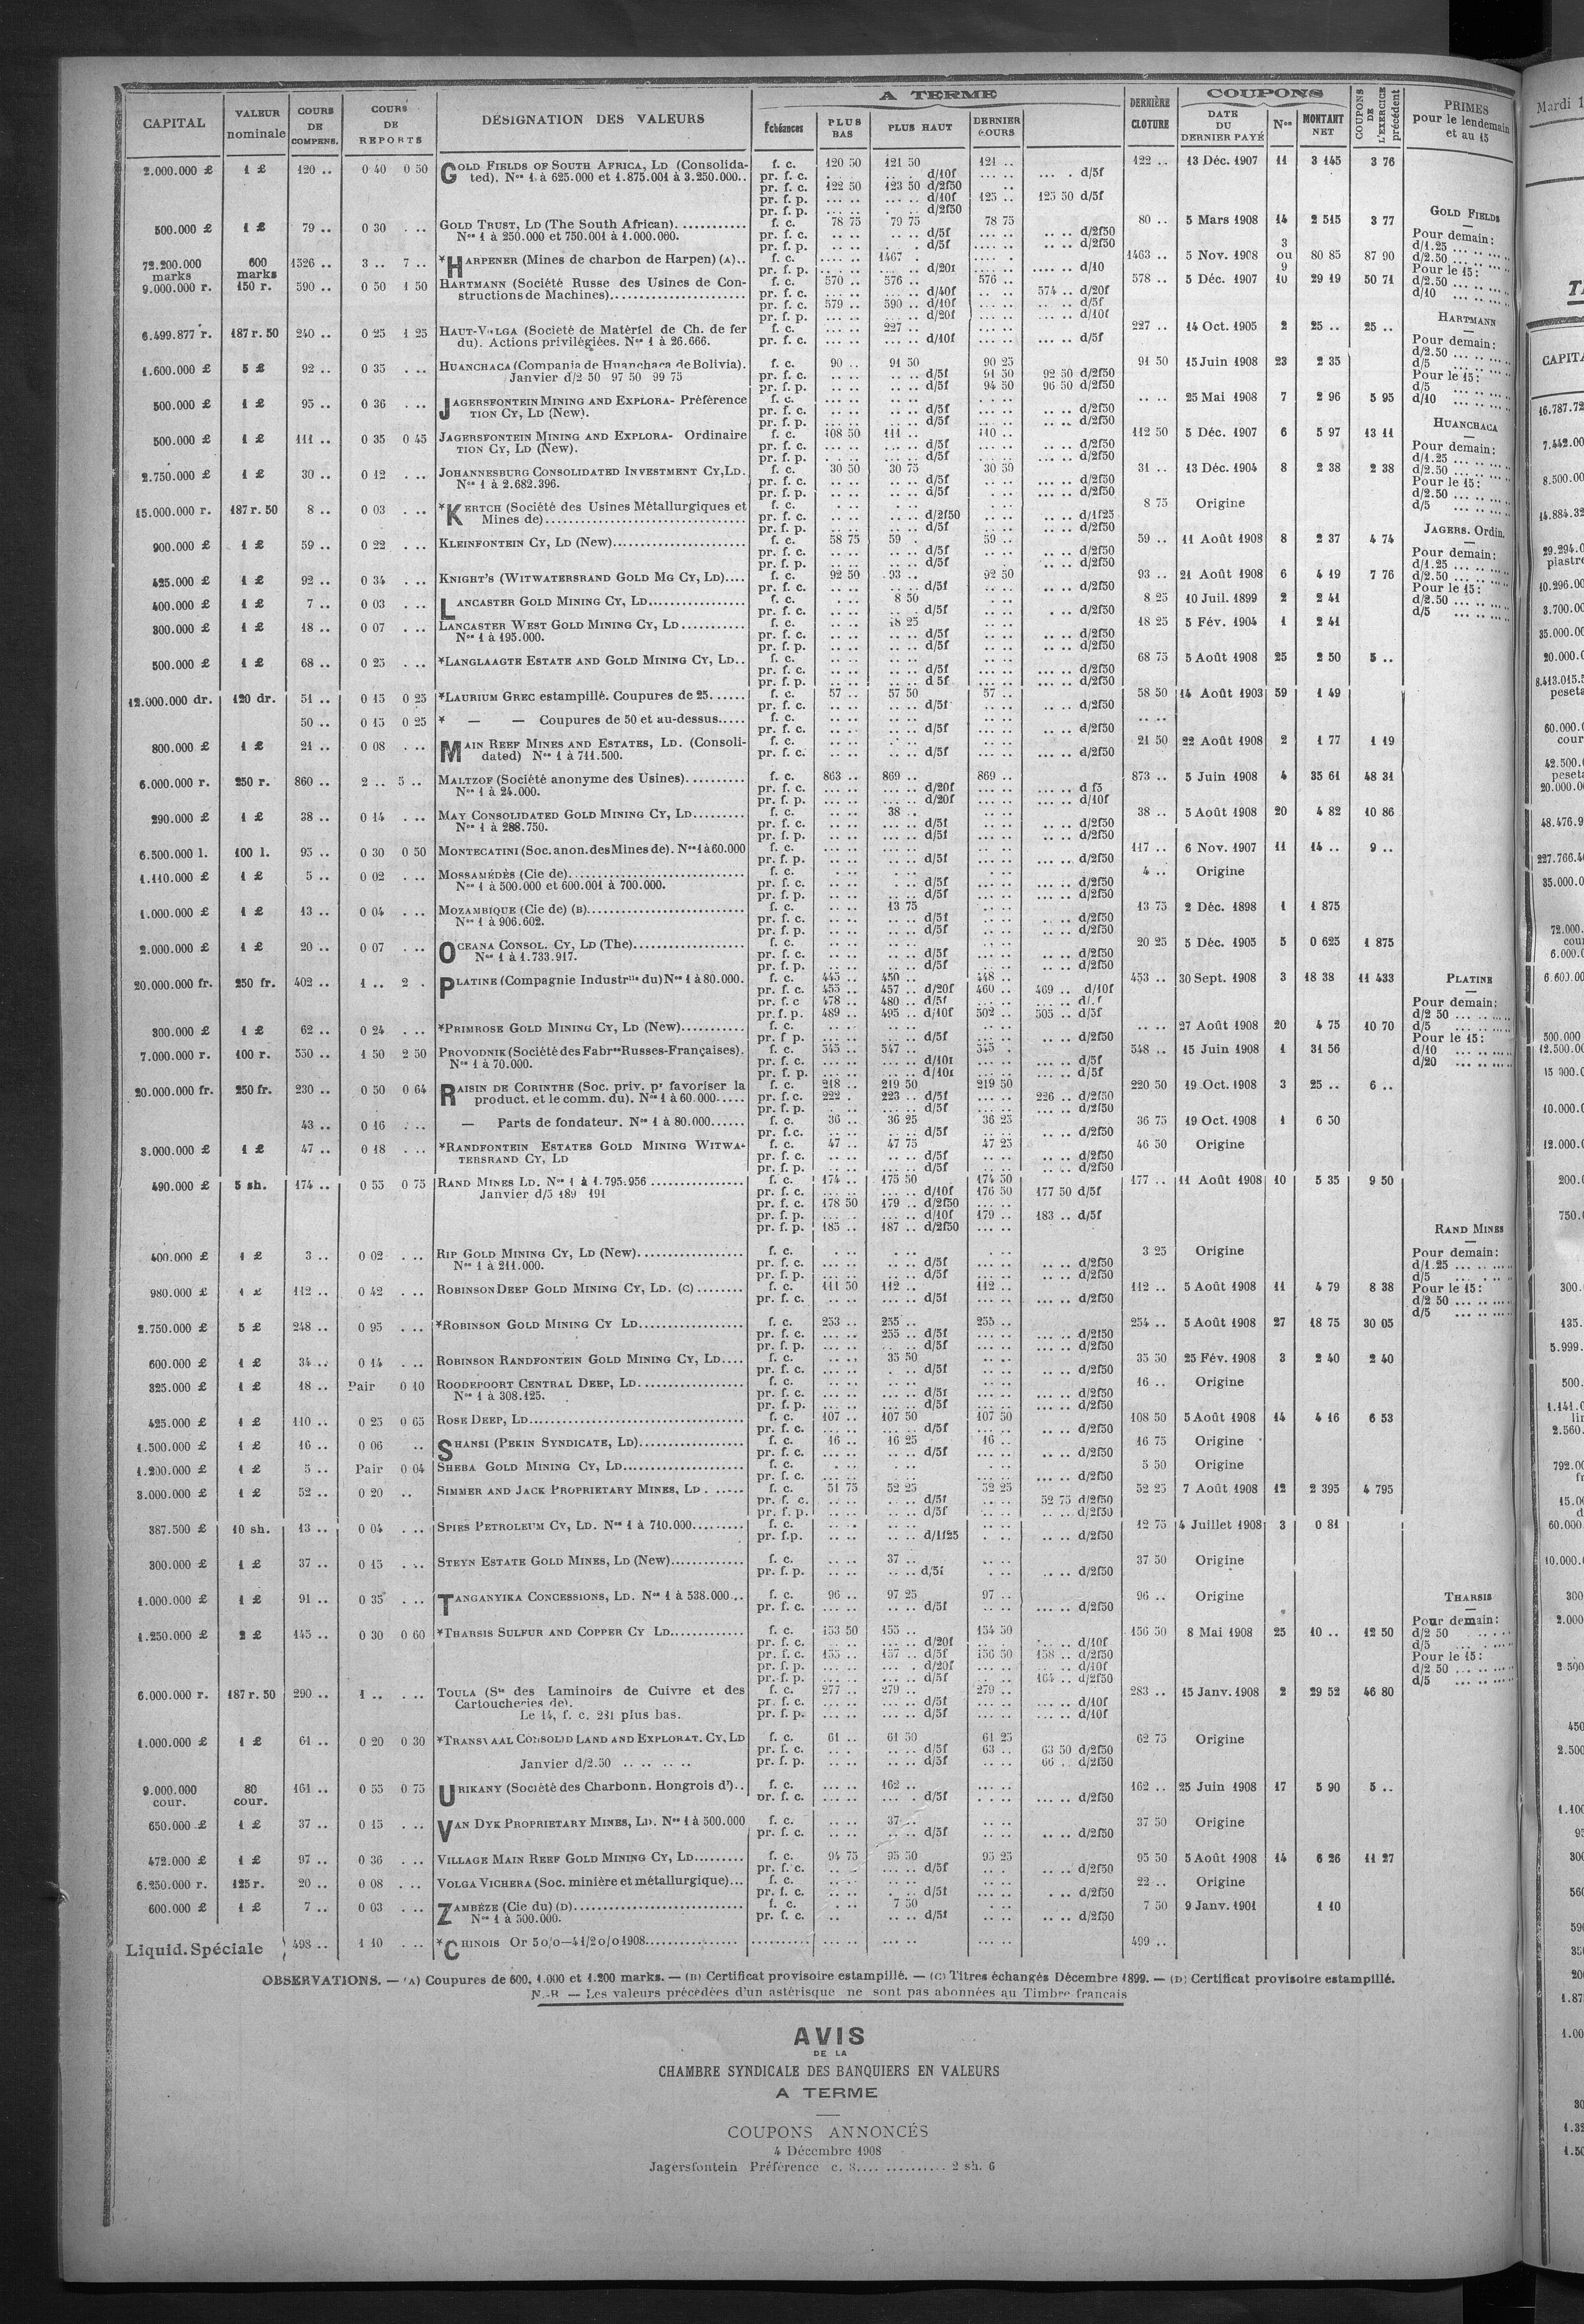 CAPITAL
VALEUR nominale
COURS DE COMPENS.
COURS DE REPORTS
DÉSIGNATION DES VALEURS
A TERME
Échéances
PLUS BAS
PLUS HAUT
DERNIER COURS
DERNIÈRE CLOTURE
COUPONS
DATE DU DERNIER PAYÉ
Nos
MONTANT NET
COUPONS DE L'EXERCICE précédent
PRIMES pour le lendemain et au 15
2.000.000 £ 1 £ 120 .. 0 40 0 50 GOLD FIELDS OF SOUTH AFRICA, LD (Consolida- f. c. 120 50 121 50 121 .. 122 .. 13 Déc. 1907 11 3 145 3 76
ted). Nos 1 à 625.000 et 1.875.001 à 3.250.000.. pr. f. c. d/10f d/5f
pr. f. c. 122 50 123 50 d/2f50
pr. f. p. d/10f 125 .. 125 50 d/5f
pr. f. p. d/2f50
500.000 £ 1 £ 79 .. 0 30 GOLD TRUST, LD (The South African). f. c. 78 75 79 75 78 75 80 .. 5 Mars 1908 14 2 515 3 77
Nos 1 à 250.000 et 750.001 à 1.000.000. pr. f. c. d/5f d/2f50
pr. f. p. d/5f d/2f50
72.200.000 marks 600 marks 1526 .. 3 .. 7 .. *HARPENER (Mines de charbon de Harpen) (A).. f. c. 1467 . 1463 .. 5 Nov. 1908 3 ou 9 80 85 87 90
pr. f. p. d/20f d/10
9.000.000 r. 150 r. 590 .. 0 50 1 50 HARTMANN (Société Russe des Usines de Con- f. c. 570 .. 576 .. 576 .. 578 .. 5 Déc. 1907 10 29 19 50 71
structions de Machines) pr. f. c. d/40f 574 .. d/20f
pr. f. c. 579 590 .. d/10f d/5f
pr. f. p. d/20f d/10f
6.499.877 r. 187 r. 50 240 .. 0 25 1 25 HAUT-VOLGA (Societé de Matériel de Ch. de fer f. c. 227 .. 227 .. 14 Oct. 1905 2 25 .. 25 ..
du). Actions privilégiées. Nos 1 à 26.666. pr. f. c. d/10f d/5f
1.600.000 £ 5 £ 92 .. 0 35 HUANCHACA (Compania de Huanchaca de Bolivia). f. c. 90 .. 91 50 90 25 91 50 15 Juin 1908 23 2 35
Janvier d/2 50 97 50 99 75 pr. f. c. d/5f 91 50 92 50 d/2f50
pr. f. p. d/5f 94 50 96 50 d/2f50
500.000 £ 1 £ 95 .. 0 36 JAGERSFONTEIN MINING AND EXPLORA- Préférence f. c. 25 Mai 1908 7 2 96 5 95
TION CY, LD (New). pr. f. c. d/5f d/2f50
pr. f. p. d/5f d/2f50
500.000 £ 1 £ 111 .. 0 35 0 45 JAGERSFONTEIN MINING AND EXPLORA- Ordinaire f. c. 108 50 111 .. 110 .. 112 50 5 Déc. 1907 6 5 97 13 11
TION CY, LD (New). pr. f. c. d/5f d/2f50
pr. f. p. d/5f d/2f50
2.750.000 £ 1 £ 30 .. 0 12 JOHANNESBURG CONSOLIDATED INVESTMENT CY, LD. f. c. 30 50 30 75 30 50 31 .. 13 Déc. 1904 8 2 38 2 38
Nos 1 à 2.682.396. pr. f. c. d/5f d/2f50
pr. f. p. d/5f d/2f50
15.000.000 r. 187 r. 50 8 .. 0 03 *KERTCH (Société des Usines Métallurgiques et f. c. 8 75 Origine
Mines de) pr. f. c. d/2f50 d/1f25
pr. f. p. d/5f d/2f50
900.000 £ 1 £ 59 .. 0 22 KLEINFONTEIN CY, LD (New) f. c. 58 75 59 . 59 .. 59 .. 11 Août 1908 8 2 37 4 74
pr. f. c. d/5f d/2f50
pr. f. p. d/5f d/2f50
425.000 £ 1 £ 92 .. 0 34 KNIGHT'S (WITWATERSRAND GOLD MG CY, LD) f. c. 92 50 93 .. 92 50 93 .. 21 Août 1908 6 4 19 7 76
pr. f. c. d/5f d/2f50
400.000 £ 1 £ 7 .. 0 03 LANCASTER GOLD MINING CY, LD f. c. 8 50 8 25 10 Juil. 1899 2 2 41
pr. f. c. d/5f d/2f50
300.000 £ 1 £ 18 .. 0 07 LANCASTER WEST GOLD MINING CY, LD f. c. 18 25 18 25 5 Fév. 1904 1 2 41
Nos 1 à 195.000. pr. f. c. d/5f d/2f50
pr. f. p. d/5f d/2f50
500.000 £ 1 £ 68 .. 0 25 *LANGLAAGTE ESTATE AND GOLD MINING CY, LD.. f. c. 68 75 5 Août 1908 25 2 50 5 ..
pr. f. c. d/5f d/2f50
pr. f. p. d 5f d/2f50
12.000.000 dr. 120 dr. 51 .. 0 15 0 25 *LAURIUM GREC estampillé. Coupures de 25 f. c. 57 .. 57 50 57 .. 58 50 14 Août 1903 59 1 49
pr. f. c. d/5f d/2f50
50 .. 0 15 0 25 * — — Coupures de 50 et au-dessus f. c.
pr. f. c. d/5f d/2f50
800.000 £ 1 £ 21 .. 0 08 MAIN REEF MINES AND ESTATES, LD. (Consoli- f. c. 21 50 22 Août 1908 2 1 77 1 19
dated) Nos 1 à 711.500. pr. f. c. d/5f d/2f50
6.000.000 r. 250 r. 860 .. 2 .. 5 .. MALTZOF (Société anonyme des Usines) f. c. 863 .. 869 .. 869 .. 873 .. 5 Juin 1908 4 35 61 48 31
Nos 1 à 24.000. pr. f. c. d/20f d f5
pr. f. p. d/20f d/10f
290.000 £ 1 £ 38 .. 0 14 MAY CONSOLIDATED GOLD MINING CY, LD f. c. 38 .. 38 .. 5 Août 1908 20 4 82 10 86
Nos 1 à 288.750. pr. f. c. d/5f d/2f50
pr. f. p. d/5f d/2f50
6.500.000 l. 100 l. 95 .. 0 30 0 50 MONTECATINI (Soc. anon. des Mines de). Nos 1 à 60.000 f. c. 117 .. 6 Nov. 1907 11 14 .. 9 ..
pr. f. p. d/5f d/2f50
1.110.000 £ 1 £ 5 .. 0 02 MOSSAMÉDÈS (Cie de) f. c. 4 .. Origine
Nos 1 à 500.000 et 600.001 à 700.000. pr. f. c. d/5f d/2f50
pr. f. p. d/5f d/2f50
1.000.000 £ 1 £ 13 .. 0 04 MOZAMBIQUE (Cie de) (B) f. c. 13 75 13 75 2 Déc. 1898 1 1 875
Nos 1 à 906.602. pr. f. c. d/5f d/2f50
pr. f. p. d/5f d/2f50
2.000.000 £ 1 £ 20 .. 0 07 OCEANA CONSOL. CY, LD (The) f. c. 20 25 5 Déc. 1905 5 0 625 1 875
Nos 1 à 1.733.917. pr. f. c. d/5f d/2f50
pr. f. p. d/5f d/2f50
20.000.000 fr. 250 fr. 402 .. 1 .. 2 . PLATINE (Compagnie Industrlle du) Nos 1 à 80.000. f. c. 445 .. 450 .. 448 .. 453 .. 30 Sept. 1908 3 18 38 11 433
pr. f. c. 455 .. 457 .. d/20f 460 .. 469 .. d/10f
pr. f. c 478 .. 480 .. d/5f
pr. f. p. 489 .. 495 .. d/10f 502 .. 505 .. d/5f
300.000 £ 1 £ 62 .. 0 24 *PRIMROSE GOLD MINING CY, LD (New) f. c. 27 Août 1908 20 4 75 10 70
pr. f. p. d/5f d/2f50
7.000.000 r. 100 r. 550 .. 1 50 2 50 PROVODNIK (Société des Fabres Russes-Françaises). f. c. 545 .. 547 .. 545 . 548 .. 15 Juin 1908 1 31 56
Nos 1 à 70.000. pr. f. c. d/10f d/5f
pr. f. p. d/10f d/5f
20.000.000 fr. 250 fr. 230 .. 0 50 0 64 RAISIN DE CORINTHE (Soc. priv. pr favoriser la f. c. 218 .. 219 50 219 50 220 50 19 Oct. 1908 3 25 .. 6 ..
product. et le comm. du). Nos 1 à 60.000 pr. f. c. 222 . 223 .. d/5f 226 .. d/2f50
pr. f. p. d/5f d/2f50
43 .. 0 16 — Parts de fondateur. Nos 1 à 80.000 f. c. 36 .. 36 25 36 25 36 75 19 Oct. 1908 1 6 50
pr. f.c. d/5f d/2f50
3.000.000 £ 1 £ 47 .. 0 18 *RANDFONTEIN ESTATES GOLD MINING WITWA- f. c. 47 .. 47 75 47 25 46 50 Origine
TERSRAND CY, LD pr. f. c. d/5f d/2f50
pr. f. p. d/5f d/2f50
490.000 £ 5 sh. 174 .. 0 55 0 75 RAND MINES LD. Nos 1 à 1.795.956 f. c. 174 .. 175 50 174 50 177 .. 11 Août 1908 10 5 35 9 50
Janvier d/5 189 191 pr. f. c. d/10f 176 50 177 50 d/5f
pr. f. c. 178 50 179 .. d/2f50
pr. f. p. d/10f 179 .. 183 .. d/5f
pr. f. p. 185 .. 187 .. d/2f50
400.000 £ 1 £ 3 .. 0 02 RIP GOLD MINING CY, LD (New) f. c. 3 25 Origine
Nos 1 à 211.000. pr. f. c. d/5f d/2f50
pr. f. p. d/5f d/2f50
980.000 £ 1 £ 112 .. 0 42 ROBINSON DEEP GOLD MINING CY, LD. (C) f. c. 111 50 112 .. 112 .. 112 .. 5 Août 1908 11 4 79 8 38
pr. f. c. d/5f d/2f50
2.750.000 £ 5 £ 248 .. 0 95 *ROBINSON GOLD MINING CY LD f. c. 253 .. 255 .. 255 .. 254 .. 5 Août 1908 27 18 75 30 05
pr. f. c. 255 .. d/5f d/2f50
pr. f. p. d/5f d/2f50
600.000 £ 1 £ 34 .. 0 14 ROBINSON RANDFONTEIN GOLD MINING CY, LD f. c. 35 50 35 50 25 Fév. 1908 3 2 40 2 40
pr. f. c. d/5f d/2f50
325.000 £ 1 £ 18 .. Pair 0 10 ROODEPOORT CENTRAL DEEP, LD f. c. 16 .. Origine
Nos 1 à 308.125. pr. f. c. d/5f d/2f50
pr. f. p. d/5f d/2f50
425.000 £ 1 £ 110 .. 0 25 0 65 ROSE DEEP, LD f. c. 107 .. 107 50 107 50 108 50 5 Août 1908 14 4 16 6 53
pr. f. c. d/5f d/2f50
1.500.000 £ 1 £ 16 .. 0 06 SHANSI (PEKIN SYNDICATE, LD) f. c. 16 .. 16 25 16 .. 16 75 Origine
pr. f. c. d/5f d/2f50
1.200.000 £ 1 £ 5 .. Pair 0 04 SHEBA GOLD MINING CY, LD f. c. 5 50 Origine
pr. f. c. d/2f50
3.000.000 £ 1 £ 52 .. 0 20 SIMMER AND JACK PROPRIETARY MINES, LD f. c. 51 75 52 25 52 25 52 25 7 Août 1908 12 2 395 4 795
pr. f. c. d/5f 52 75 d/2f50
pr. f. p. d/5f d/2f50
387.500 £ 10 sh. 13 .. 0 04 SPIES PETROLEUM CY, LD. Nos 1 à 710.000 f. c. 12 75 4 Juillet 1908 3 0 81
pr. f.p. d/1f25 d/2f50
300.000 £ 1 £ 37 .. 0 15 STEYN ESTATE GOLD MINES, LD (New) f. c. 37 .. 37 50 Origine
pr. f. p. d/5f d/2f50
1.000.000 £ 1 £ 91 .. 0 35 TANGANYIKA CONCESSIONS, LD. Nos 1 à 538.000 f. c. 96 .. 97 25 97 .. 96 .. Origine
pr. f. c. d/5f d/2f50
1.250.000 £ 2 £ 145 .. 0 30 0 60 *THARSIS SULFUR AND COPPER CY LD f. c. 153 50 155 .. 154 50 156 50 8 Mai 1908 25 10 .. 12 50
pr. f. c. d/20f d/10f
pr. f. c. 155 .. 157 .. d/5f 156 50 158 .. d/2f50
pr. f. p. d/20f d/10f
pr. f. p. d/5f 164 .. d/2f50
6.000.000 r. 187 r. 50 290 .. 1 .. TOULA (Sté des Laminoirs de Cuivre et des f. c. 277 .. 279 .. 279 .. 283 .. 15 Janv. 1908 2 29 52 46 80
Cartoucheries de). pr. f. c. d/5f d/10f
Le 14, f. c. 281 plus bas. pr. f. p. d/5f d/10f
1.000.000 £ 1 £ 61 .. 0 20 0 30 *TRANSVAAL CONSOLID LAND AND EXPLORAT. CY, LD f. c. 61 .. 61 50 61 25 62 75 Origine
pr. f. c. d/5f 63 .. 63 50 d/2f50
Janvier d/2.50 .. .. .. .. pr. f. p. d/5f 66 . d/2f50
9.000.000 cour. 80 cour. 161 .. 0 55 0 75 URIKANY (Société des Charbonn. Hongrois d').. f. c. 162 .. 162 .. 25 Juin 1908 17 5 90 5 ..
pr. f. c. d/5f d/2f50
650.000 £ 1 £ 37 .. 0 15 VAN DYK PROPRIETARY MINES, LD. Nos 1 à 500.000 f. c. 37 .. 37 50 Origine
pr. f. c. d/5f d/2f50
472.000 £ 1 £ 97 .. 0 36 VILLAGE MAIN REEF GOLD MINING CY, LD f. c. 94 75 95 50 95 25 95 50 5 Août 1908 14 6 26 11 27
pr. f. c. d/5f d/2f50
6.250.000 r. 125 r. 20 .. 0 08 VOLGA VICHERA (Soc. minière et métallurgique)... f. c. 22 .. Origine
pr. f. c. d/5f d/2f50
600.000 £ 1 £ 7 .. 0 03 ZAMBÈZE (Cie du) (D) f. c. 7 50 7 50 9 Janv. 1901 1 10
Nos 1 à 500.000. pr. f. c. d/5f d/2f50
Liquid. Spéciale 498 .. 1 10 *CHINOIS Or 5 o/o—4 1/2 o/o 1908 499 ..
GOLD FIELDS
Pour demain:
d/1.25
d/2.50
Pour le 15:
d/2.50
d/10
HARTMANN
Pour demain:
d/2.50
d/5
Pour le 15:
d/5
d/10
HUANCHACA
Pour demain:
d/1.25
d/2.50
Pour le 15:
d/2.50
d/5
JAGERS. Ordin.
Pour demain:
d/1.25
d/2.50
Pour le 15:
d/2.50
d/5
PLATINE
Pour demain:
d/2 50
d/5
Pour le 15:
d/10
d/20
RAND MINES
Pour demain:
d/1.25
d/5
Pour le 15:
d/2 50
d/5
THARSIS
Pour demain:
d/2 50
d/5
Pour le 15:
d/2 50
d/5
OBSERVATIONS. — (A) Coupures de 600, 1.000 et 1.200 marks. — (B) Certificat provisoire estampillé. — (C) Titres échangés Décembre 1899. — (D) Certificat provisoire estampillé.
N.-B — Les valeurs précédées d'un astérisque ne sont pas abonnées au Timbre français
AVIS
DE LA
CHAMBRE SYNDICALE DES BANQUIERS EN VALEURS
A TERME
COUPONS ANNONCÉS
4 Décembre 1908
Jagersfontein Préférence c. 8.... .......... 2 sh. 6
Mardi 1
CAPITA